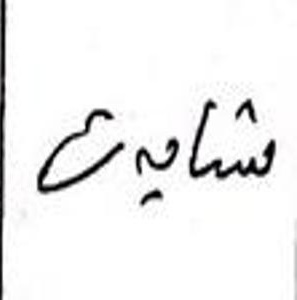 شایع